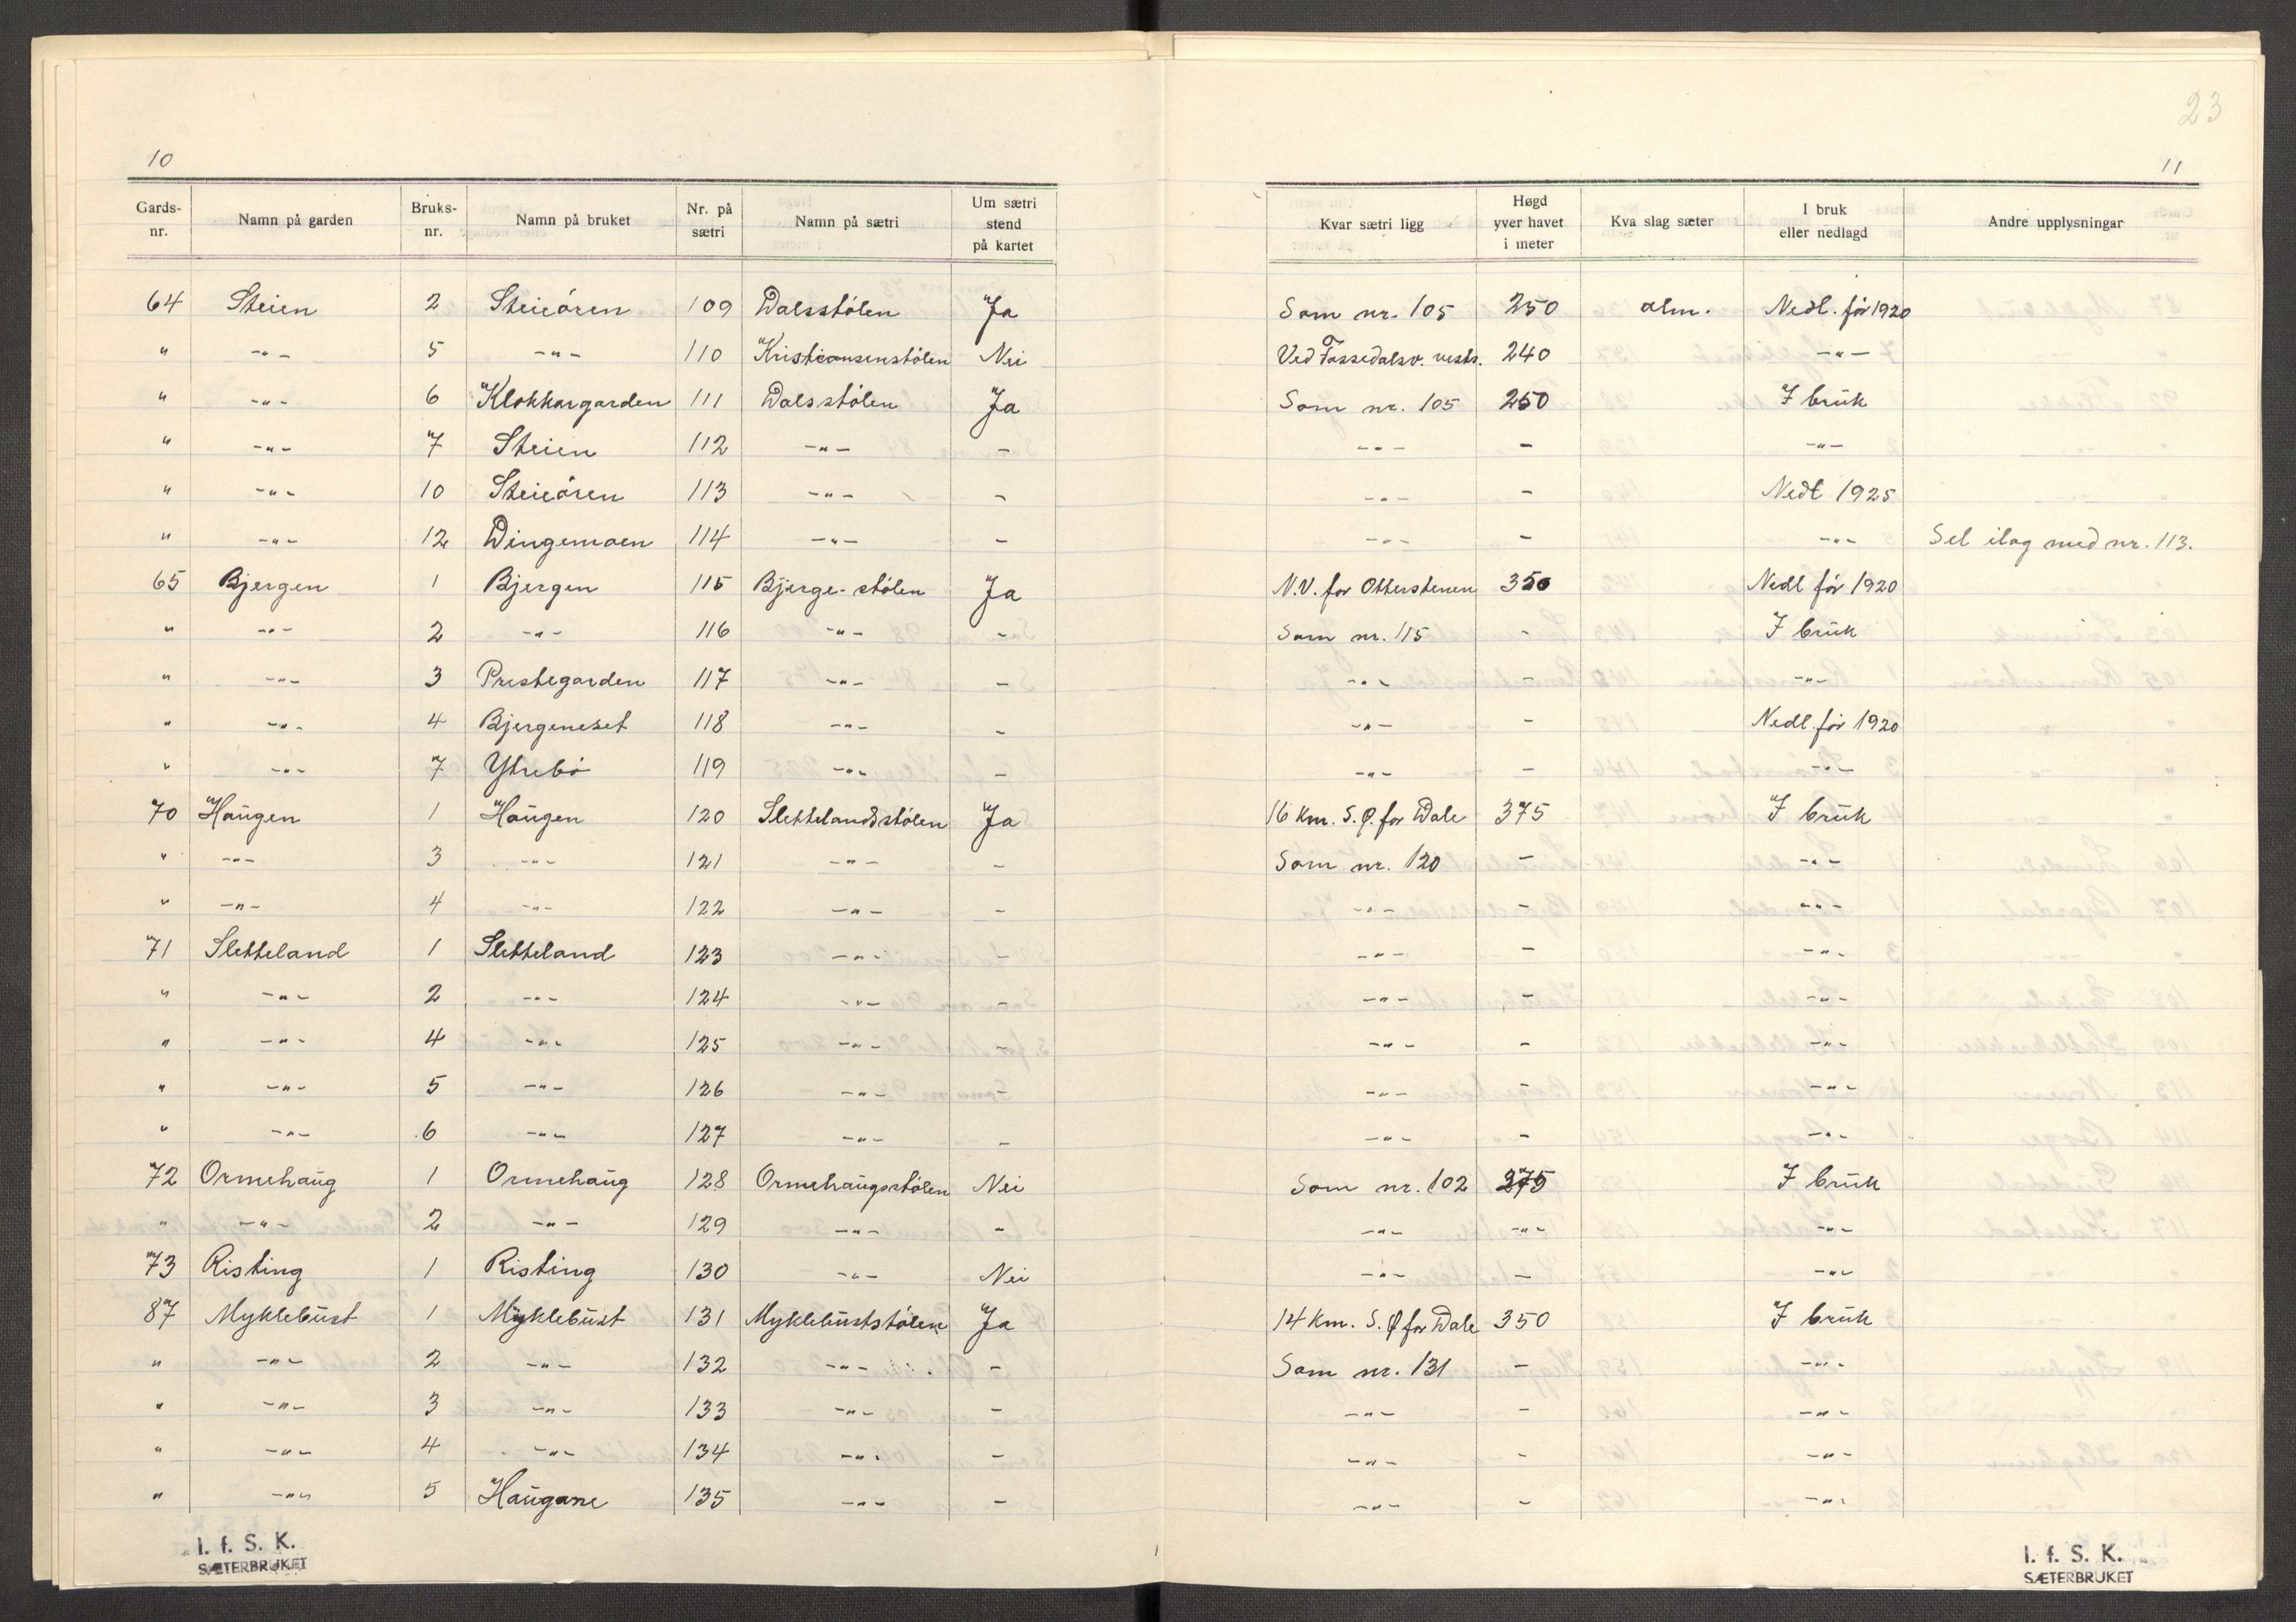 23
10
11
Gards-nr. | Namn på garden | Bruks-nr. | Namn på bruket | Nr. på sætri | Namn på sætri | Um sætri stend på kartet | Kvar sætri ligg | Høgd yver havet i meter | Kva slag sæter | I bruk eller nedlagd | Andre upplysningar
64 | Steien | 2 | Steieören | 109 | Dalsstølen | Ja | Som nr. 105 | 250 | alm. | Nedl. før 1920
" | -"- | 5 | -"- | 110 | Kristiansenstölen | Nei | Ved Fossedalsv. vests. | 240 | | -"-
" | -"- | 6 | Klokkargarden | 111 | Dalsstølen | Ja | Som nr. 105 | 250 | | I bruk
" | -"- | 7 | Steien | 112 | -"- | - | -"- | - | | -"-
" | -"- | 10 | Steieören | 113 | -"- | - | -"- | - | | Nedl 1925
" | -"- | 12 | Dingemoen | 114 | -"- | - | -"- | - | | -"- | Sel ilag med nr. 113.
65 | Bjergen | 1 | Bjergen | 115 | Bjerge-stølen | Ja | N.V. for Otterstenen | 350 | | Nedl før 1920
" | -"- | 2 | -"- | 116 | -"- | - | Som nr. 115 | - | | I bruk
" | -"- | 3 | Prestegarden | 117 | -"- | - | -"- | - | | -"-
" | -"- | 4 | Bjergeneset | 118 | -"- | - | -"- | - | | Nedl. før 1920
" | -"- | 7 | Ytrebö | 119 | -"- | - | -"- | - | | -"-
70 | Haugen | 1 | Haugen | 120 | Slettelandsstølen | Ja | 16 Km. S.Ø. for Dale | 375 | | I bruk
" | -"- | 3 | -"- | 121 | -"- | - | Som nr. 120 | - | | -"-
" | -"- | 4 | -"- | 122 | -"- | - | -"- | - | | -"-
71 | Sletteland | 1 | Sletteland | 123 | -"- | - | -"- | - | | -"-
" | -"- | 2 | -"- | 124 | -"- | - | -"- | - | | -"-
" | -"- | 4 | -"- | 125 | -"- | - | -"- | - | | -"-
" | -"- | 5 | -"- | 126 | -"- | - | -"- | - | | -"-
" | -"- | 6 | -"- | 127 | -"- | - | -"- | - | | -"-
72 | Ormehaug | 1 | Ormehaug | 128 | Ormehaugsstølen | Nei | Som nr. 102 | 375 | | I bruk
" | -"- | 2 | -"- | 129 | -"- | - | -"- | -"- | | -"-
73 | Risting | 1 | Risting | 130 | -"- | Nei | -"- | - | | -"-
87 | Myklebust | 1 | Myklebust | 131 | Myklebuststølen | Ja | 14 Km. S.Ø for Dale | 350 | | I bruk
" | -"- | 2 | -"- | 132 | -"- | - | Som nr. 131 | - | | -"-
" | -"- | 3 | -"- | 133 | -"- | - | -"- | - | | -"-
" | -"- | 4 | -"- | 134 | -"- | - | -"- | - | | -"-
" | -"- | 5 | Haugane | 135 | -"- | - | -"- | - | | -"-
I. f. S. K.
SÆTERBRUKET
I. f. S. K.
SÆTERBRUKET